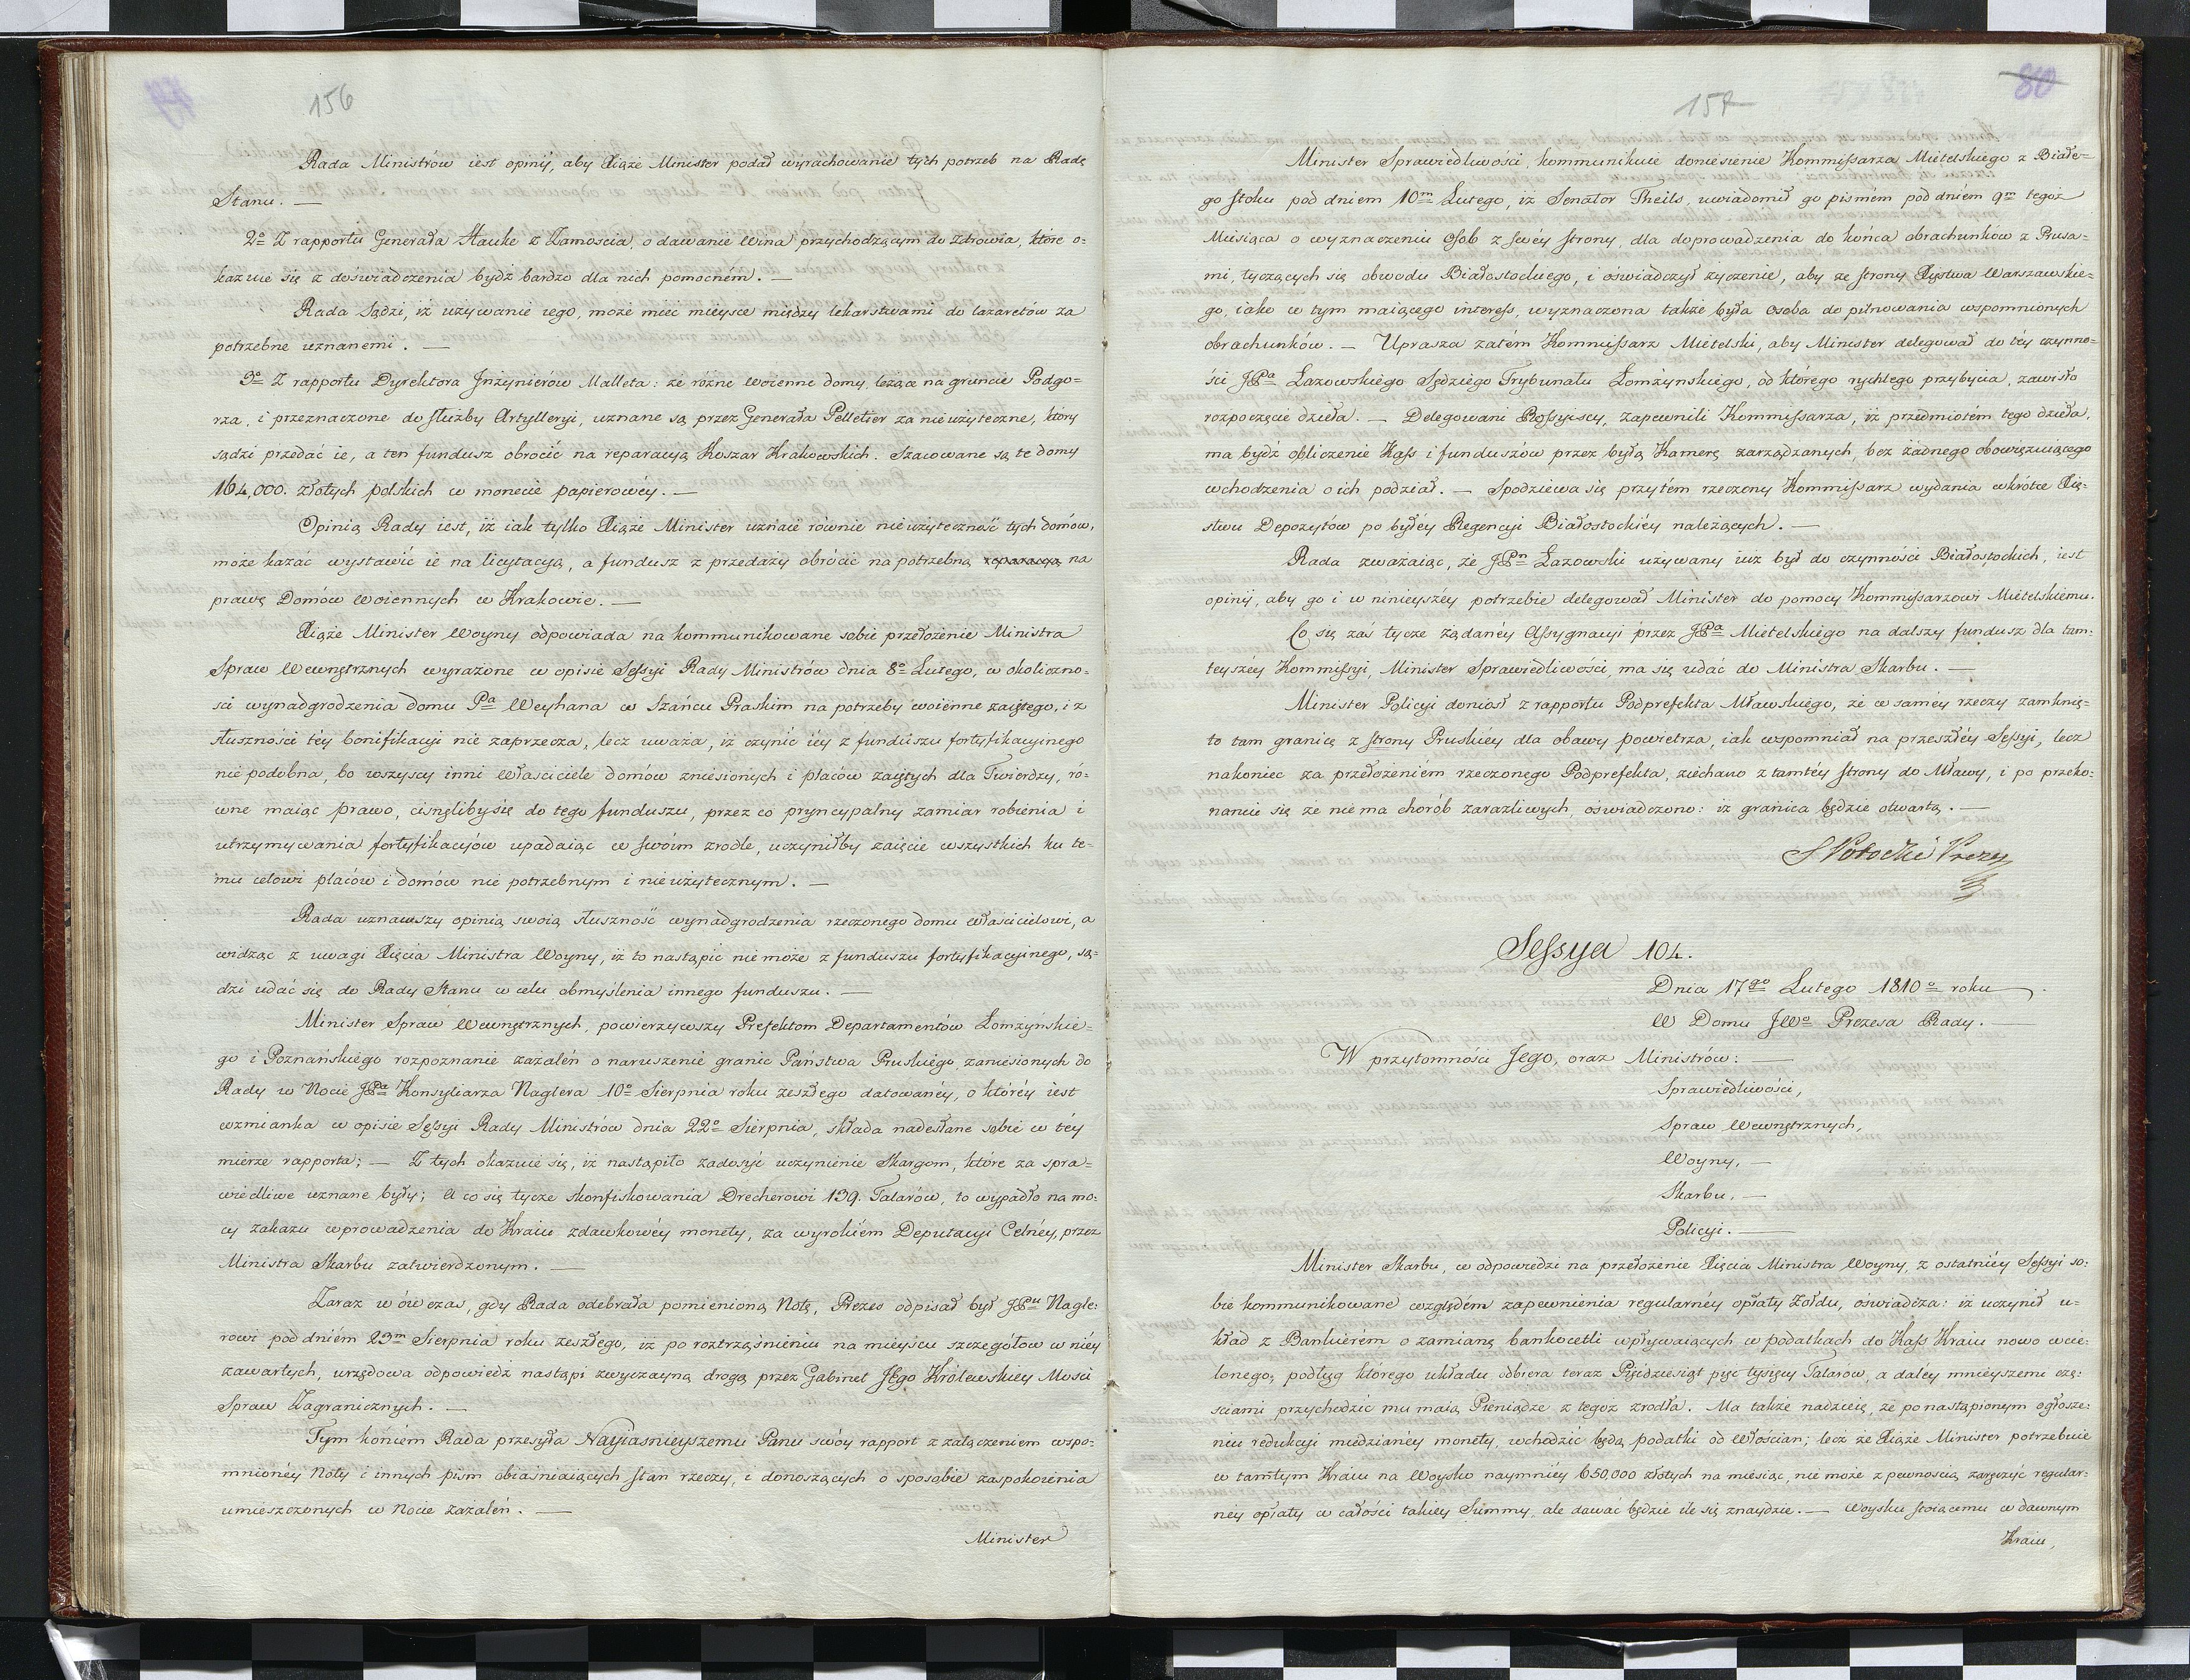 156
Rada Ministrów iest opinij, aby Xiąże Minister podał wyrachowanie tych potrzeb na Radę
Stanu. —
2o Z rapportu Generała Hauke z Zamościa, o dawanie Wina przychodzącym do zdrowia, które o=
kazuie się z doświadczenia bydź bardzo dla nich pomocném. —
Rada sądzi, iż używanie iego, może mieć mieysce między lekarstwami do lazaretów za
potrzebne uznanemi. —
3o Z rapportu Dyrektora Jnżynierów Malleta: że różne woienne domy, leżące na gruncie Podgo=
rza, i przeznaczone do służby Artylleryi, uznane są przez Generała Pelletier za nieużyteczne, który
sądzi przedać ie, a ten fundusz obrócić na reparacyą Koszar Krakowskich. Szacowane są te domy
164,000. złotych polskich w monecie papierowéy. —
Opinią Rady iest, iż iak tylko Xiąże Minister uznaie równie nieużyteczność tych domów,
może kazać wystawić ie na licytacyą, a fundusz z przedaży obrócić na potrzebną reparacyą na
prawę Domów woiennych w Krakowie. —
Xiąże Minister Woyny odpowiada na kommunikowane sobie przełożenie Ministra
Spraw Wewnętrznych wyrażone w opisie Sessyi Rady Ministrów dnia 8o Lutego, w okoliczno=
ści wynadgrodzenia domu Pa Weyhana w Szańcu Praskim na potrzeby woienne zaiętego, i z
słuszności téy bonifikacyi nie zaprzecza, lecz uważa, iż czynić iéy z funduszu fortyfikacyinego
nie podobna, bo wszyscy inni właściciele domów zniesionych i placów zaiętych dla Twierdzy, ró=
wne maiąc prawo, cisnęliby się do tego funduszu, przez co pryncypalny zamiar robienia i
utrzymywania fortyfikacyów upadaiąc w swóim zrodle, uczyniłby zaięcie wszystkich ku te=
mu celowi placów i domów nie potrzebnym i nieużytecznym. —
Rada uznawszy opinią swoią słuszność wynadgrodzenia rzeczonego domu właścicielowi, a
widząc z uwagi Xięcia Ministra Woyny, iż to nastąpić nie może z funduszu fortyfikacyinego, są=
dzi udać się do Rady Stanu w celu obmyślenia innego funduszu. —
Minister Spraw Wewnętrznych, powierzywszy Prefektom Departamentów Łomżyńskie=
go i Poznańskiego rozpoznanie zażaleń o naruszenie granic Państwa Pruskiego, zaniesionych do
Rady w Nocie JPa Konsyliarza Naglera 10o Sierpnia roku zeszłego datowanéy, o któréy iest
wzmianka w opisie Sessyi Rady Ministrów dnia 22o Sierpnia, składa nadesłane sobie w téy
mierze rapporta; — Z tych okazuie się, iż nastąpiło zadosyć uczynienie Skargom, które za spra=
wiedliwe uznane były; A co się tycze skonfiskowania Drecherowi 139. Talarów, to wypadło na mo=
cy zakazu wprowadzenia do Kraiu zdawkowéy monety, za wyrokiém Deputacyi Celnéy, przez
Ministra Skarbu zatwierdzonym. —
Zaraz w ów czas, gdy Rada odebrała pomienioną Notę, Prezes odpisał był JPu Nagle=
rowi pod dniém 23m Sierpnia roku zeszłego, iż po roztrząśnieniu na mieyscu szczegółow w niéy
zawartych, urzędowa odpowiedź nastąpi zwyczayną drogą przez Gabinet JEgo Królewskiey Mosci
Spraw Zagranicznych. —
Tym końcem Rada przesyła Nayiasnieyszemu Panu swóy rapport z załączeniem wspo=
mnionéy Noty i innych pism obiaśniaiących stan rzeczy, i donoszących o sposobie zaspokoienia
umieszczonych w Nocie zażaleń. —
Minister
157
80
Minister Sprawiedliwości, kommunikuie doniesienie Kommissarza Mietelskiego z Białe=
go stoku pod dniem 10m Lutego, iż Senator Theils, uwiadomił go pismém pod dniem 9m tegoż
Miesiąca o wyznaczeniu Osob z swéy strony, dla doprowadzenia do końca obrachunków z Prusa=
mi, tyczących się obwodu Białostockiego, i oświadczył życzenie, aby ze strony Xięstwa Warszawskie=
go, iako w tym maiącego interess, wyznaczona także była osoba do pilnowania wspomnionych
obrachunków. — Uprasza zatém Kommissarz Mietelski, aby Minister delegował do téy czynno=
ści JPa Łazowskiego Sędziego Trybunału Łomżynskiego, od którego rychłego przybycia, zawisło
rozpoczęcie dzieła. — Delegowani Rossyiscy, zapewnili Kommissarza, iż przedmiotém tego dzieła,
ma bydź obliczenie Kass i funduszów przez byłą Kamerę zarządzanych, bez żadnego obowięzuiącego
wchodzenia o ich podział. — Spodziewa się przytém rzeczony Kommissarz wydania wkrótce Xię=
stwu Depozytów po byłéy Regencyi Białostockiéy należących. —
Rada zważaiąc, że JPn Łazowski używany iuż był do czynności Białostockich, iest
opinij, aby go i w ninieyszéy potrzebie delegował Minister do pomocy Kommissarzowi Mietelskiemu.
Co się zaś tycze żądanéy Assygnacyi przez JPa Mietelskiego na dalszy fundusz dla tam=
teyszéy Kommissyi, Minister Sprawiedliwości, ma się udać do Ministra Skarbu. —
Minister Policyi doniosł z rapportu Podprefekta Mławskiego, że w saméy rzeczy zamknię=
to tam granicę z strony Pruskiey dla obawy powietrza, iak wspomniał na przeszłéy Sessyi, lecz
nakoniec za przełożeniém rzeczonego Podprefekta, ziechano z tamtéy strony do Mławy, i po przeko=
naniu się że nie ma chorób zaraźliwych, oświadczono: iż granica będzie otwartą. —
S Potocki Prezes
Sessya 104.
Dnia 17go Lutego 1810o roku
W Domu JWo Prezesa Rady. —
W przytomności Jego, oraz Ministrów: —
Sprawiedliwości,
Spraw Wewnętrznych,
Woyny, —
Skarbu, —
Policyi. —
Minister Skarbu, w odpowiedzi na przełożenie Xięcia Ministra Woyny, z ostatniéy Sessyi so=
bie kommunikowane względém zapewnienia regularnéy opłaty żołdu, oświadcza: iż uczynił u=
kład z Bankierém o zamianę bankocetli wpływaiących w podatkach do Kass Kraiu nowo wcie=
lonego, podług którego układu odbiera teraz Pięćdziesiąt pięć tysięcy Talarów, a daléy mnieyszemi czę=
sciami przychodzić mu maią Pieniądze z tegoż zrodła. Ma także nadzieię, że po nastąpionym ogłosze=
niu redukcyi miedzianéy monety, wchodzić będą podatki od Włościan; lecz że Xiąże Minister potrzebuie
w tamtym Kraiu na Woysko naymniéy 650,000 złotych na miesiąc, nie może z pewnością zaręczyć regular=
néy opłaty w całości takiey Summy, ale dawać będzie ile się znaydzie. — Woysku stoiącemu w dawnym
Kraiu,